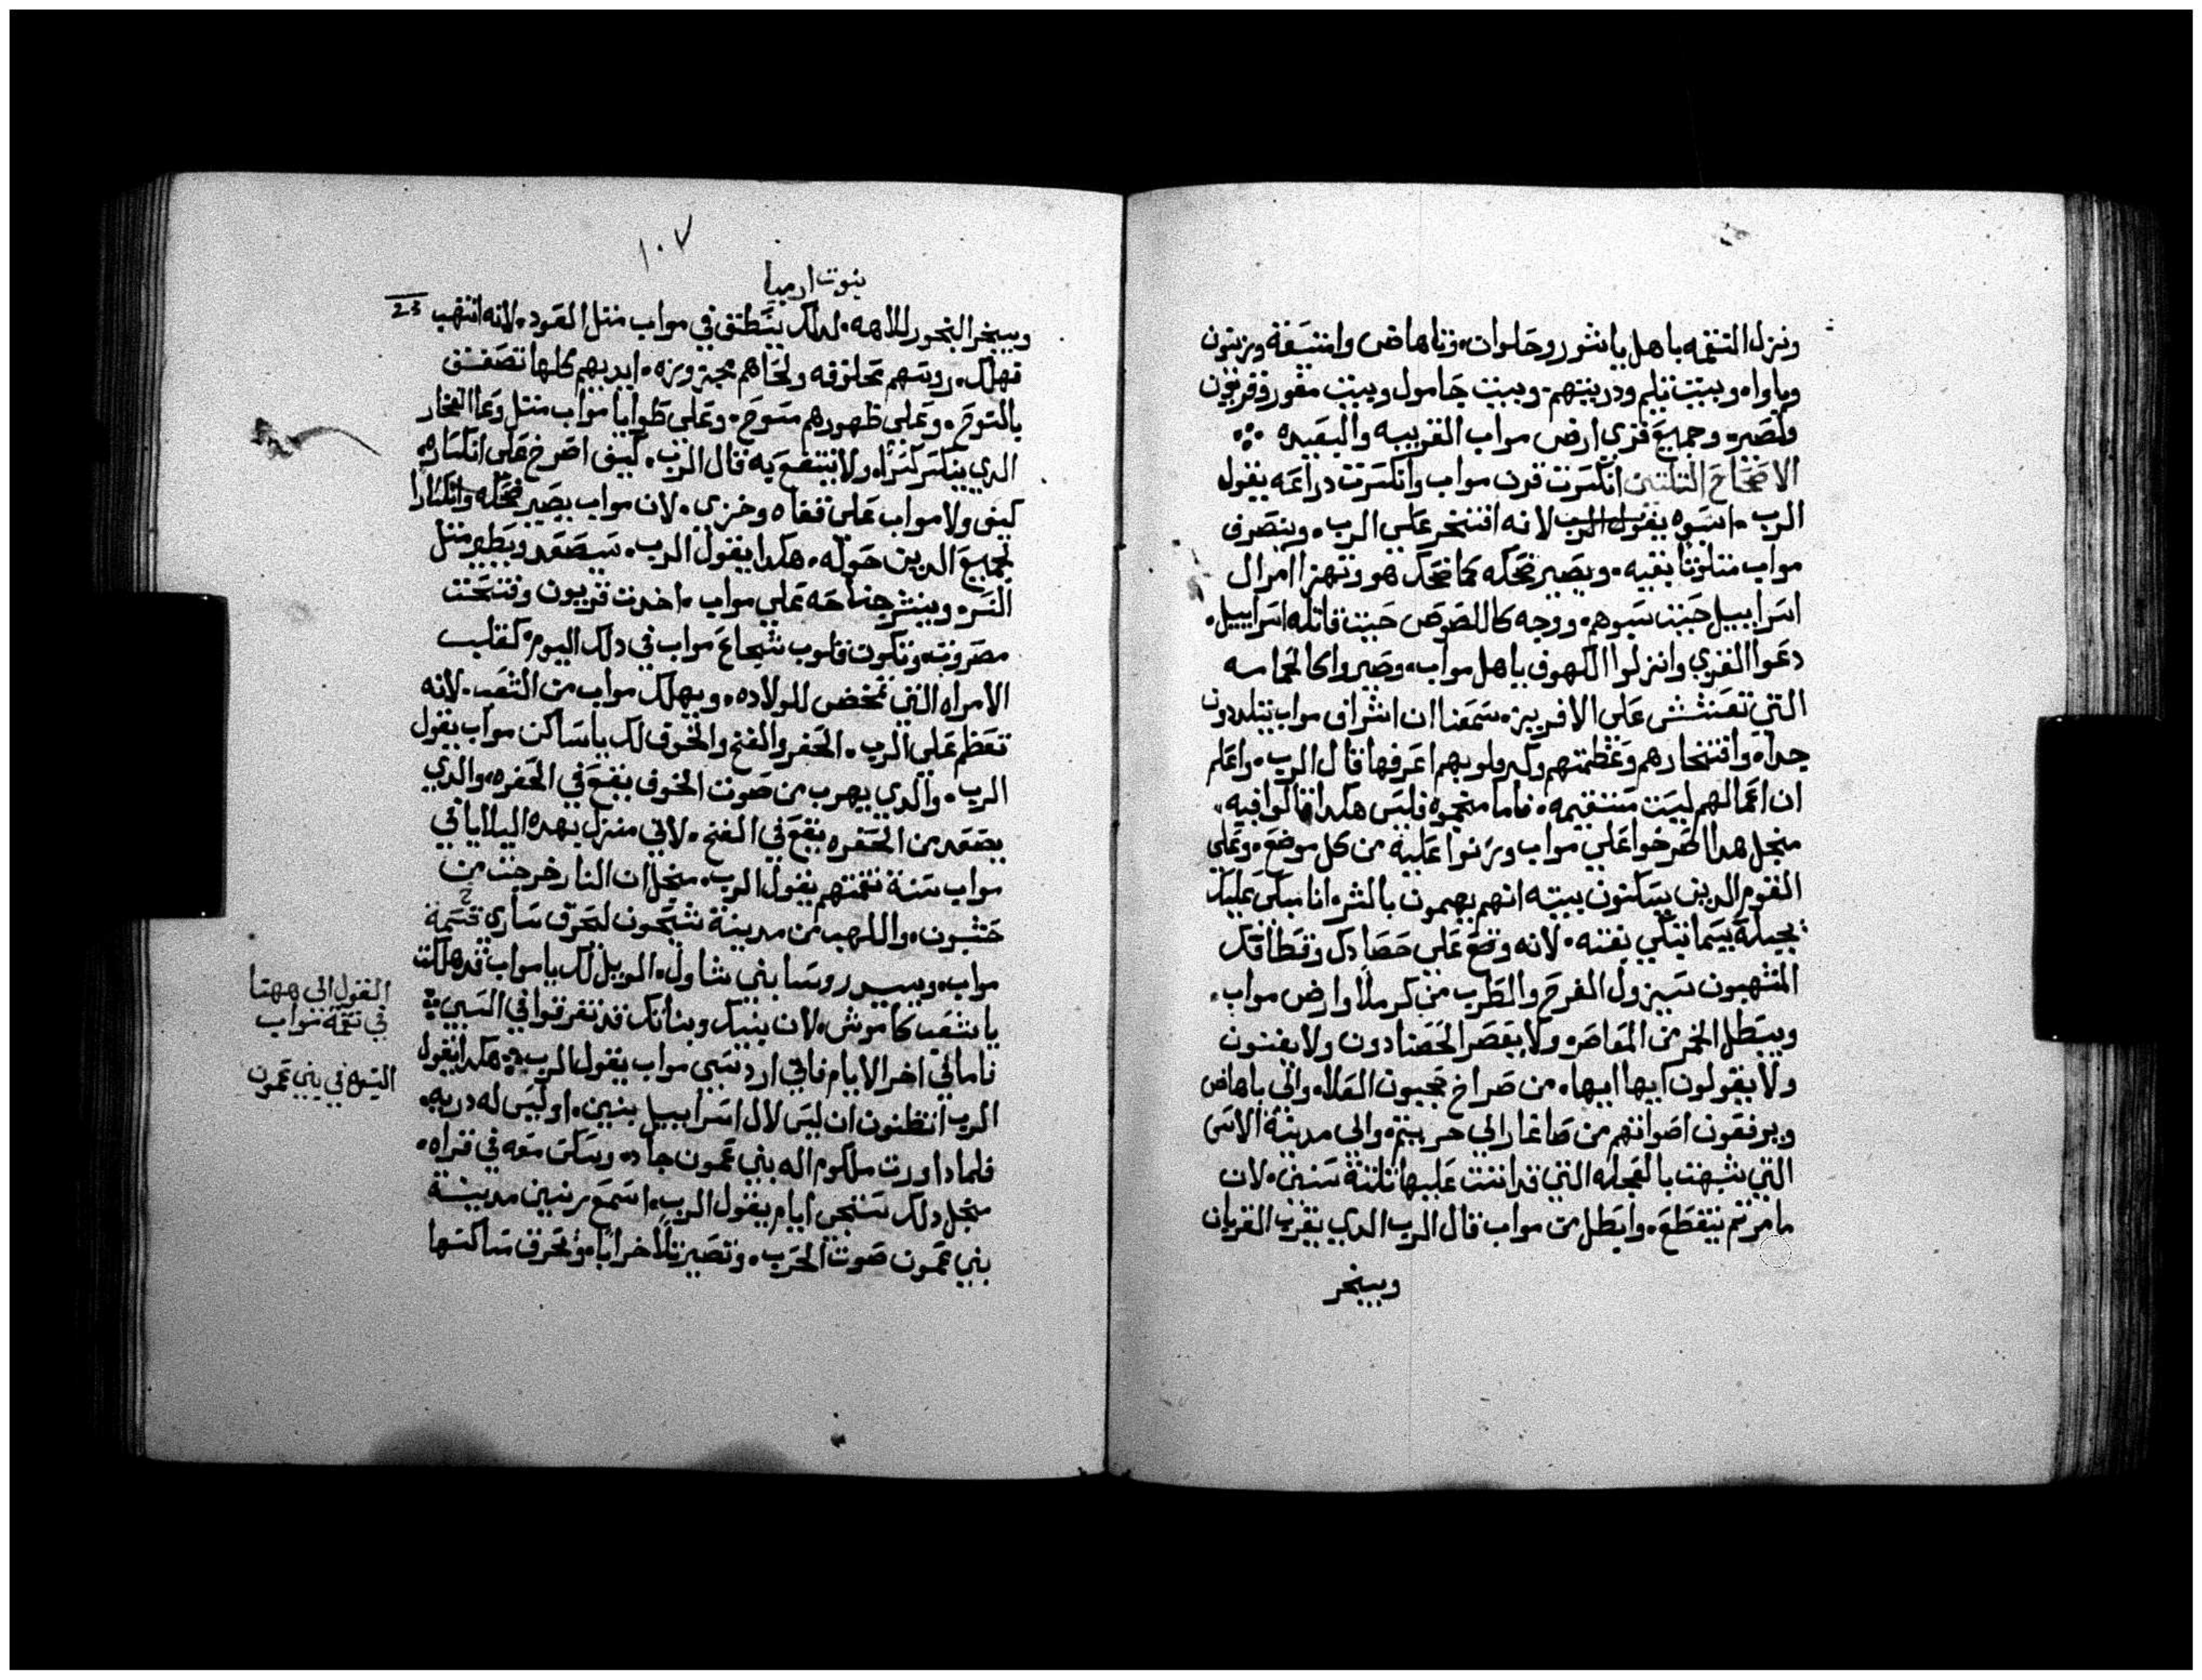 ونزل النقمه باهل ياشور وحلوان وتاهاض وامنسعة وزيتون
وباواه وبيت تلم ودريتهم وبيت جامول وبيت مقور وفريون
ولصيره وجميع قري ارض مواب القريبه والبعيده
الاصحاح التلتين انكسرت قرن مواب وانكسرت دراعه يقول
الرب اسوه يقول الرب لانه افتخر علي الرب وينصرف
مواب متلوتا بقيه ويصير ضحكه كما ضحك هو وتهزا امرال
اسراييل حيت سبوهم ووجه كاللصوص حيت قاتله اسراييل
دعوا القري وانزلوا الكهوف ياهل مواب وصيروا كالحمامه
التي تعشش علي الافريز سمعنا ان اشراف مواب يتلددون
جدا وافتخارهم وعظمتهم وكبر قلوبهم اعرفها قال الرب واعلم
ان اعمالهم ليست مستقيمه فاما منجموه فليس هكدا قالوا فيه
منجل هدا اصرخوا علي مواب ورنوا عليه من كل موضع وعلي
القوم الدين يسكنون بيته انهم يهمون بالشر انا مبكي عليك
يجيله بيتما يتكي بفتنه لانه وقع علي حصادك وقطافك
المنتهبون سيزول الفرح والطرب من كرملا وارض مواب
ويبطل الخمر من المعاصره ولا يعصر الحصادون ولا يغنون
ولا يقولون ايها ايها من صراخ محبون العلا والي ياهاص
ويرفعون اصواتهم من صاغار الي حرييتم والي مدينة الاسي
التي شبهت بالعجله التي قد اتت عليها تلتة سنين لان
ما مرتم ينقطع وابطل من مواب قال الرب الدي يقرب القربان
ويبخر
١٠٧
نبوت ارميا
23
ويبخر البخور للالهه لدلك ينطق في مواب متل العود لانه انتهب
تهلك روسهم محلوقه ولحاهم مجزوزه ايديهم كلها تصفق
بالنوح وعلي ظهورهم مسوح وعلي طوايا مواب متل وعا الفخار
الدي ينكسر كسرا ولا ينتفع به قال الرب كيف اصرخ علي انكساره
كيف ولا مواب علي قفاه وخزي لان مواب يصير ضحكه وانكسارا
لجميع الدين حوله هكدا يقول الرب سيصعد ويطير متل
النسر وينشر جناحه علي مواب اخدت قريون وفتحت
مصروت وتكون قلوب شجاع مواب في دلك اليوم كقلب
الامراه التي تمخض للولاده ويهلك مواب من الشعب لانه
تعظم علي الرب الحفر والفخ والخوف لك ياساكن مواب يقول
الرب والدي يهرب من صوت الخوف يقع في الحفره والدي
يصعد من الحفره يقع في الفخ لاني منزل بهده البلايا في
مواب سنة نقمتهم يقول الرب منجل ان النار خرجت من
حشبون واللهب من مدينة شيحون لتحرق ساري قسمة
مواب ويبيد روسا بني شاول الويل لك يامواب قد هلكت
ياشعب كاموش لان بنيك وبناتك قد تفرقوا في السبي
فاما في اخر الايام فاني ارد سبي مواب يقول الرب هكدا يقول
الرب اتظنون ان ليس لال اسراييل بنين اوليس له دريه
فلمادا ورت ملكوم اله بني عمون جاد وسكن معه في قراه
منجل دلك ستجي ايام يقول الرب اسمع رنين مدينة
بني عمون صوت الحرب وتصير تلا خرابا وتحرق ساكنها
القول الي ههنا
في نقمة مواب
في بني عمون